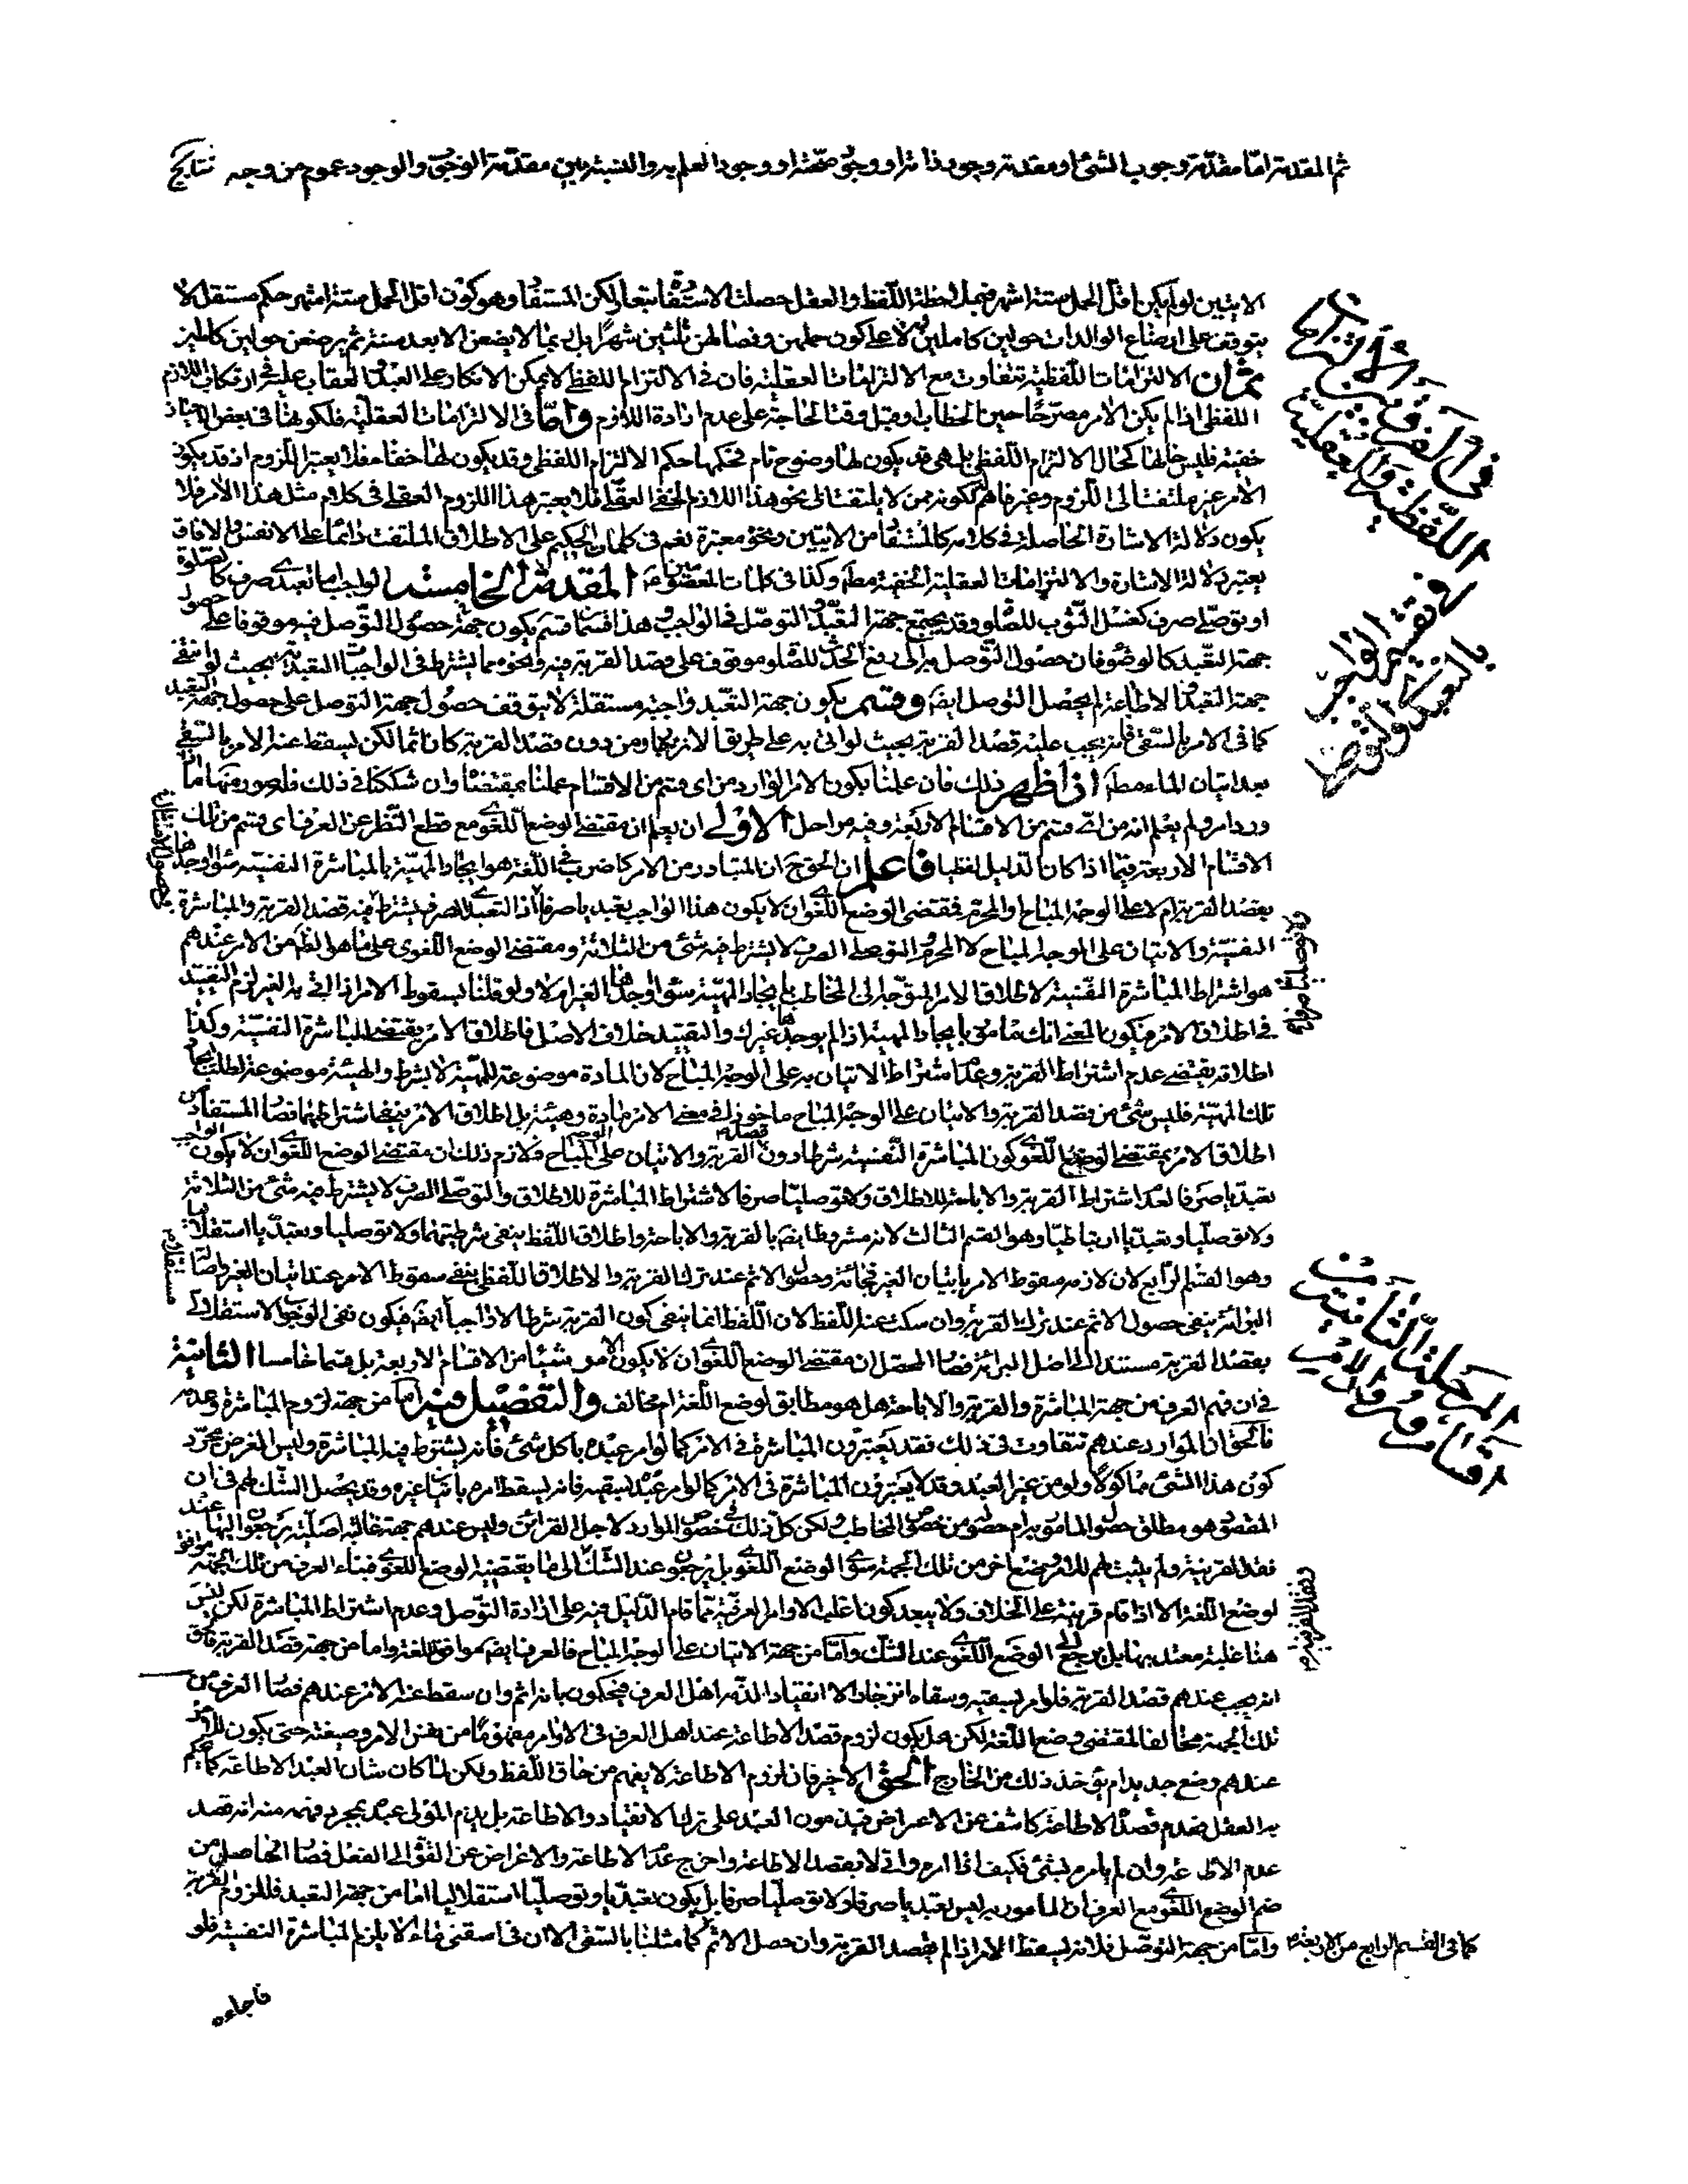 ثم المقدمة اما مقدمة وجوب الشئ او مقدمة وجود ذاته او وجود صحته او وجود العلم به والنسبة بين مقدمة الوجوب والوجود عموم من وجه نتايج
الايتين لو لم يكن اقل الحمل ستة اشهر فبملاحظة اللفظ والعقل حصلت الاستفادة تبعا ولكن المستفاد وهو كون اقل الحمل ستة اشهر حكم مستقل لا
يتوقف على ارضاع الوالدات حولين كاملين ولا على كون حملهن وفصالهن ثلثين شهرا بل ربما لا يضعن الا بعد سنة ثم يرضعن حولين كاملين
ثم ان الالتزامات اللفظية تتفاوت مع الالتزامات العقلية فان فى الالتزام اللفظى لا يمكن الانكار على العبد والعقاب عليه فى ارتكاب اللازم
اللفظى اذا لم يكن الامر مصرحا حين الخطاب او قبل وقت الحاجة على عدم ارادة اللازم واما فى الالتزامات العقلية فلكونها فى بعض الاحيان
خفية فليس حالها كحال الالتزام اللفظى بل هى قد يكون لها وضوح تام فحكمها حكم الالتزام اللفظى وقد يكون لها خفاء فلا يعتبر اللزوم اذ قد يكون
الامر غير ملتفت الى اللزوم وغير فاهم لكونه ممن لا يلتفت الى نحو هذا اللازم الخفى العقلى فلا يعتبر هذا اللزوم العقلى فى كلام مثل هذا الامر فلا
يكون دلالة الاشارة الحاصلة فى كلامه كالمستفاد من الايتين ونحوه معتبرة نعم فى كلمات الحكيم على الاطلاق الملتفت دائما على الانفس والافاق
يعتبر دلالة الاشارة والالتزامات العقلية الخفية مطلقا وكذا فى كلمات المعصومين ع المقدمة الخامسة الواجب اما تعبدى صرف كالصلوة
او توصلى صرف كغسل الثوب للصلوة وقد يجتمع جهة التعبد والتوصل فى الواجب وهذا قسمان قسم يكون جهة حصول التوصل فيه موقوفا على حصول
جهة التعبد كالوضوء فان حصول التوصل به الى رفع الحدث للصلوة موقوف على قصد القربة فيه ونحوه مما يشترط فى الواجبات التعبدية بحيث لو انتفى
جهة التعبد والاطاعة لم يحصل التوصل ايضا وقسم يكون جهة التعبد واجبة مستقلة لا يتوقف حصول جهة التوصل على حصول جهة التعبد
كما فى الامر بالسقى فانه يجب عليه قصد القربة بحيث لو اتى به على طريق الانزجار ومن دون قصد القربة كان اثما لكن يسقط عنه الامر بالسقى
بعد اتيان الماء مطلقا اذا ظهر ذلك فان علمنا بكون الامر الوارد من اى قسم من الاقسام عملنا بمقتضاه وان شككنا فى ذلك فله صور منها ما
ورد امر ولم يعلم انه من اى قسم من الاقسام الاربعة وفيه مراحل الاولى ان يعلم ان مقتضى الوضع اللغوى مع قطع النظر عن العرف اى قسم من تلك
الاقسام الاربعة فيما اذا كان الدليل لفظيا فاعلم ان الحق ان المتبادر من الامر كاضرب فى اللغة هو ايجاد المهية بالمباشرة النفسية سواء اوجدها
بقصد القربة ام لا على الوجه المباح والمحرم فمقتضى الوضع اللغوى ان لا يكون هذا الواجب تعبديا صرفا اذ التعبدى الصرف يشترط فيه قصد القربة والمباشرة
النفسية والاتيان على الوجه المباح لا المحرم والتوصلى الصرف لا يشترط فيه شئ من الثلاثة ومقتضى الوضع اللغوى على ما هو الظاهر من الامر عندهم
هو اشتراط المباشرة النفسية لاطلاق الامر المتوجه الى المخاطب بايجاد المهية سواء اوجدها الغير ام لا ولو قلنا بسقوط الامر اذا اتى به الغير لزم التقييد
فى اطلاق الامر فيكون المعنى انك مامور بايجاد المهية اذا لم يوجدها غيرك والتقييد خلاف الاصل فاطلاق الامر يقتضى المباشرة النفسية وكذا
اطلاقه يقتضى عدم اشتراط القربة وعدم اشتراط الاتيان به على الوجه المباح لان المادة موضوعة للمهية لا بشرط والهيئة موضوعة لطلب ايجاد
تلك المهية فليس شئ من قصد القربة والاتيان على الوجه المباح ماخوذا فى معنى الامر مادة وهيئة بل اطلاق الامر ينفى اشتراطهما فصار المستفاد من
اطلاق الامر بمقتضى الوضع اللغوى كون المباشرة النفسية شرطا دون قصد القربة والاتيان على الوجه المباح فلازم ذلك ان مقتضى الوضع اللغوى ان لا يكون الواجب
تعبديا صرفا لعدم اشتراط القربة والاباحة للاطلاق ولا توصليا صرفا لاشتراط المباشرة للاطلاق والتوصلى الصرف لا يشترط فيه شئ من الثلاثة
ولا توصليا وتعبديا ارتباطيا وهو القسم الثالث لانه مشروط ايضا بالقربة والاباحة واطلاق اللفظ ينفى شرطيتهما ولا توصليا وتعبديا استقلاليا
وهو القسم الرابع لان لازمه سقوط الامر باتيان الغير مجانة وحصول الاثم عند ترك القربة والاطلاق اللفظى ينفى سقوط الامر عند اتيان الغير واصالة
البرائة ينفى حصول الاثم عند ترك القربة وان سكت عنه اللفظ لان اللفظ انما ينفى كون القربة شرطا لا واجبا ايضا فيكون نفى الوجوب الاستقلالى
بقصد القربة مستندا الى اصل البرائة فصار المحصل ان مقتضى الوضع اللغوى ان لا يكون الامر شيئا من الاقسام الاربعة بل قسما خامسا الثانية
فى ان فهم العرف من جهة المباشرة والقربة والاباحة هل هو مطابق لوضع اللغة ام مخالف والتفصيل فيه اما من جهة لزوم المباشرة وعدمه
فالحق ان الموارد عندهم تتفاوت فى ذلك فقد يعتبرون المباشرة فى الامر كما لو امر عبده باكل شئ فانه يشترط فيه المباشرة وليس الغرض مجرد
كون هذا الشئ ماكولا ولو من غير العبد وقد لا يعتبرون المباشرة فى الامر كما لو امر عبده بسقيه فانه يسقط امره باتيان غيره وقد يحصل الشك لهم فى ان
المقصود هو مطلق حصول المامور به ام حصوله من خصوص المخاطب ولكن كل ذلك فى خصوص الموارد لاجل القرائن وليس عندهم جهة غالبة اصلية يرجعون اليها عند
فقد القرينة ولم يثبت لهم للامر وضع اخر من تلك الجهة سوى الوضع اللغوى بل يرجعون عند الشك الى ما يقتضيه الوضع اللغوى فبناء العرف من تلك الجهة موافق
لوضع اللغة الا اذا قام قرينة على الخلاف ولا يبعد كون اغلب الاوامر العرفية مما قام الدليل فيه على ارادة التوصل وعدم اشتراط المباشرة لكن ليس
هنا غلبة معتد بها بل يرجع الى الوضع اللغوى عند الشك واما من جهة الاتيان على الوجه المباح فالعرف ايضا موافق للغة واما من جهة قصد القربة فالحق
انه يجب عندهم قصد القربة فلو امر بسقيه وسقاه انزجارا لا انقيادا لذمه اهل العرف فيحكمون بانه اثم وان سقط عنه الامر عندهم فصار العرف من
تلك الجهة مخالفا لمقتضى وضع اللغة لكن هل يكون لزوم قصد الاطاعة عند اهل العرف فى الاوامر مفهوما من نفس الامر وصيغته حتى يكون للامر
عندهم وضع جديد ام يؤخذ ذلك من الخارج الحق الاخير فان لزوم الاطاعة لا يفهم من حاق اللفظ ولكن لما كان شان العبد الاطاعة كما يحكم
به العقل فعدم قصد الاطاعة كاشف عن الاعراض فيذمون العبد على ترك الانقياد والاطاعة بل يذم المولى عبده بمجرد فهمه منه انه قصد
عدم الاطاعة وان لم يامره بشئ فكيف اذا امره واتى لا بقصد الاطاعة واخرج عدم الاطاعة والاعراض عن القوة الى الفعل فصار الحاصل من
ضم الوضع اللغوى مع العرف ان المامور به ليس تعبديا صرفا ولا توصليا صرفا بل يكون تعبديا وتوصليا استقلاليا اما من جهة التعبد فللزوم القربة
واما من جهة التوصل فلانه يسقط الامر اذا لم يقصد القربة وان حصل الاثم كما مثلنا بالسقى الا ان فى اسقنى ماء لا يلزم المباشرة النفسية فلو
كما فى القسم الرابع من الاربعة
فى الفرق بين الالتزامات
اللفظية والعقلية
فى تقسيم الواجب
بالتعبدى والتوصلى
المرحلة الثانية
وفقد القرينة
فاجاءه